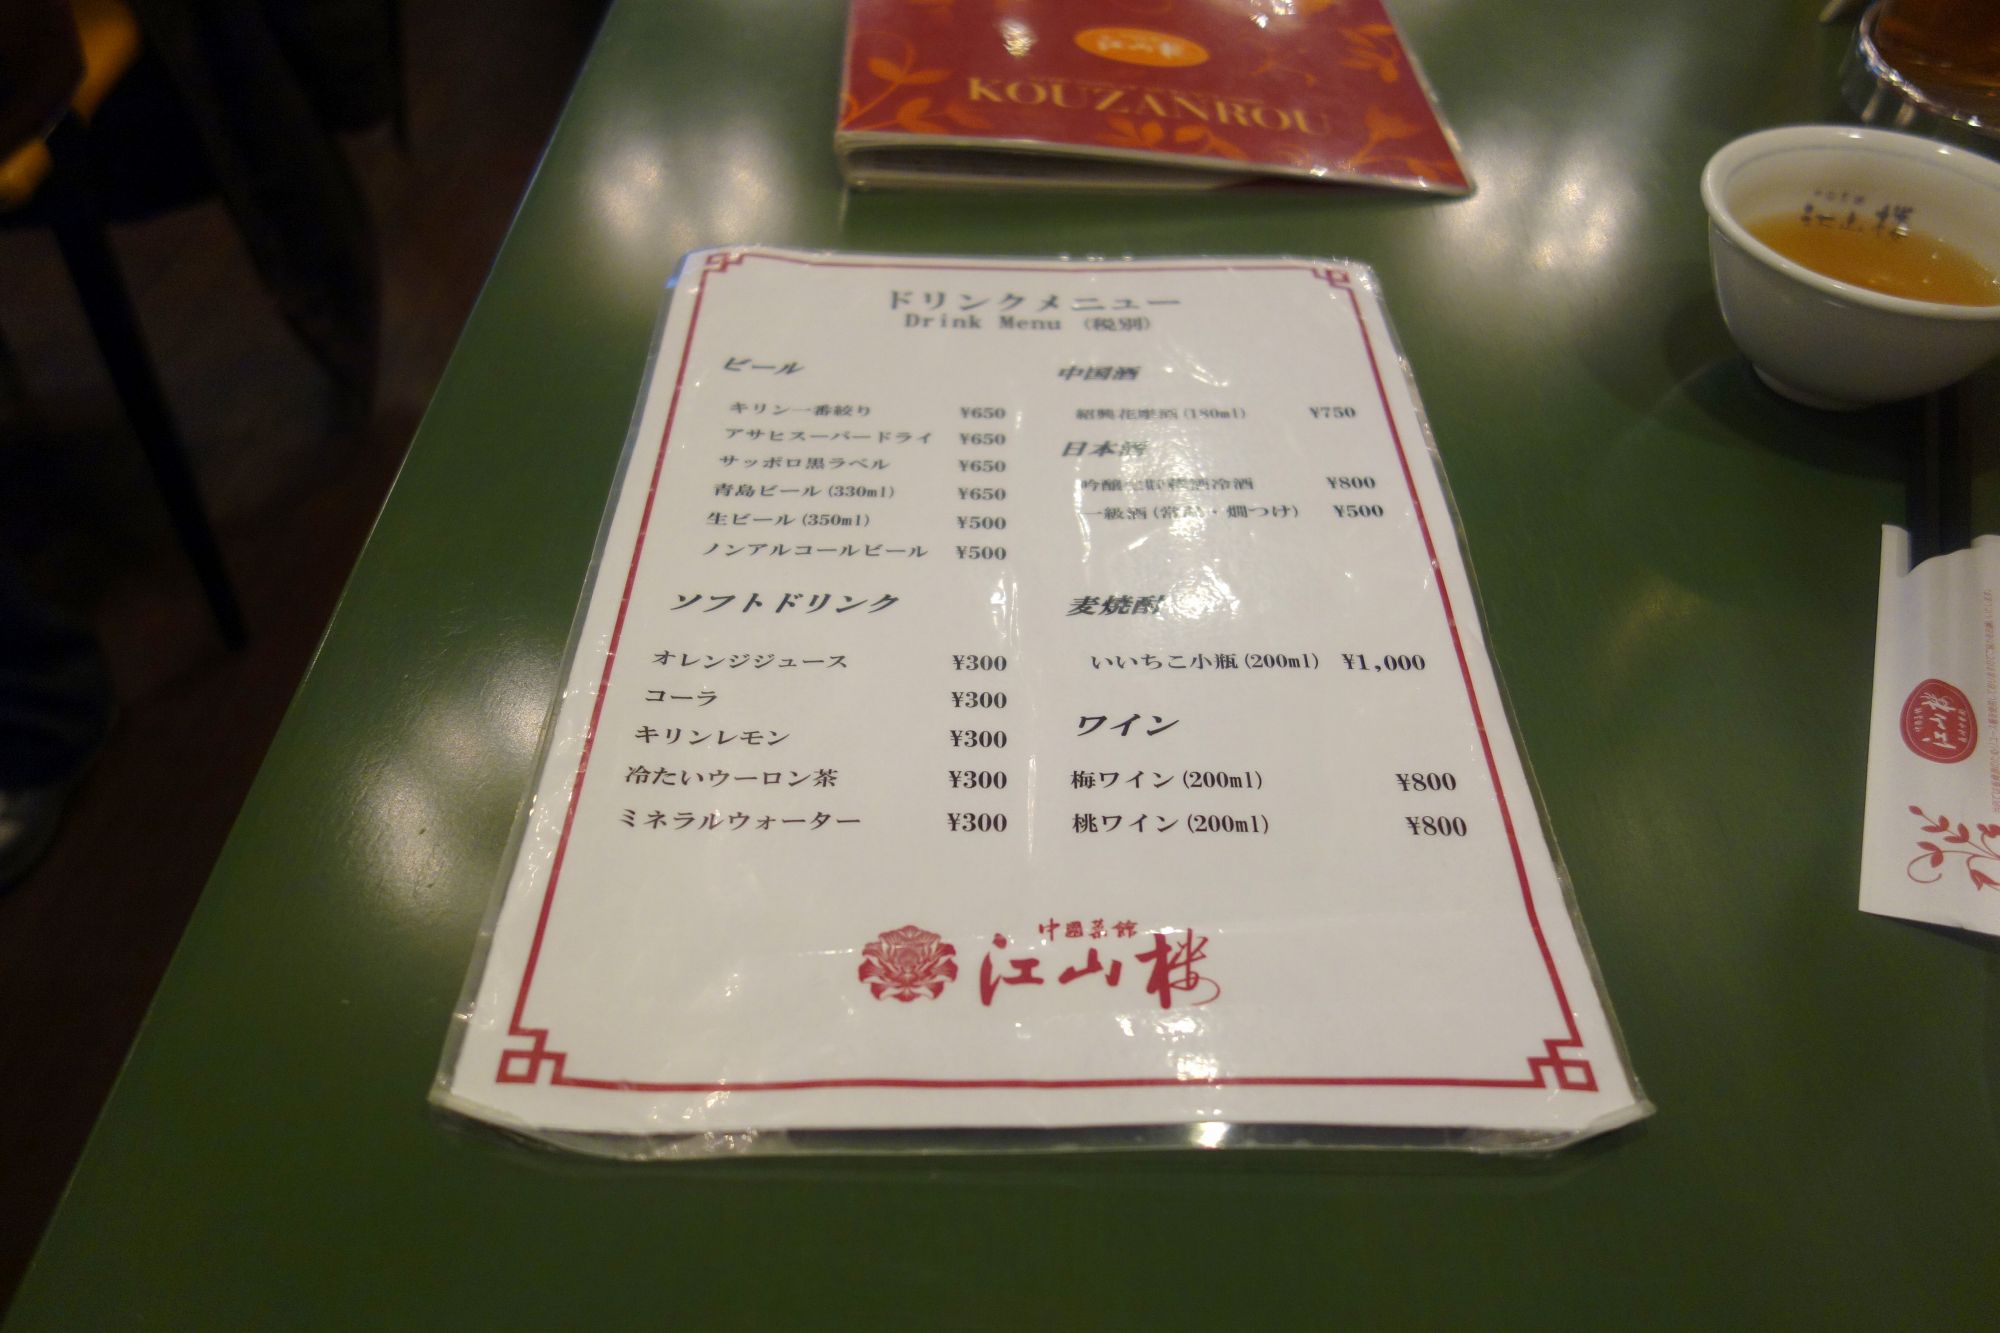 江山楼
KOUZANROU
ドリンクメニュー
Drink Menu (税別)
ビール
キリン一番絞り ¥650
アサヒスーパードライ ¥650
サッポロ黒ラベル ¥650
青島ビール(330ml) ¥650
生ビール(350ml) ¥500
ノンアルコールビール ¥500
ソフトドリンク
オレンジジュース ¥300
コーラ ¥300
キリンレモン ¥300
冷たいウーロン茶 ¥300
ミネラルウォーター ¥300
中国酒
紹興花彫酒(180ml) ¥750
日本酒
吟醸 冷酒 ¥800
一級酒(常温・燗つけ) ¥500
麦焼酎
いいちこ小瓶(200ml) ¥1,000
ワイン
梅ワイン(200ml) ¥800
桃ワイン(200ml) ¥800
中國菜館
江山楼
江山楼
江山楼